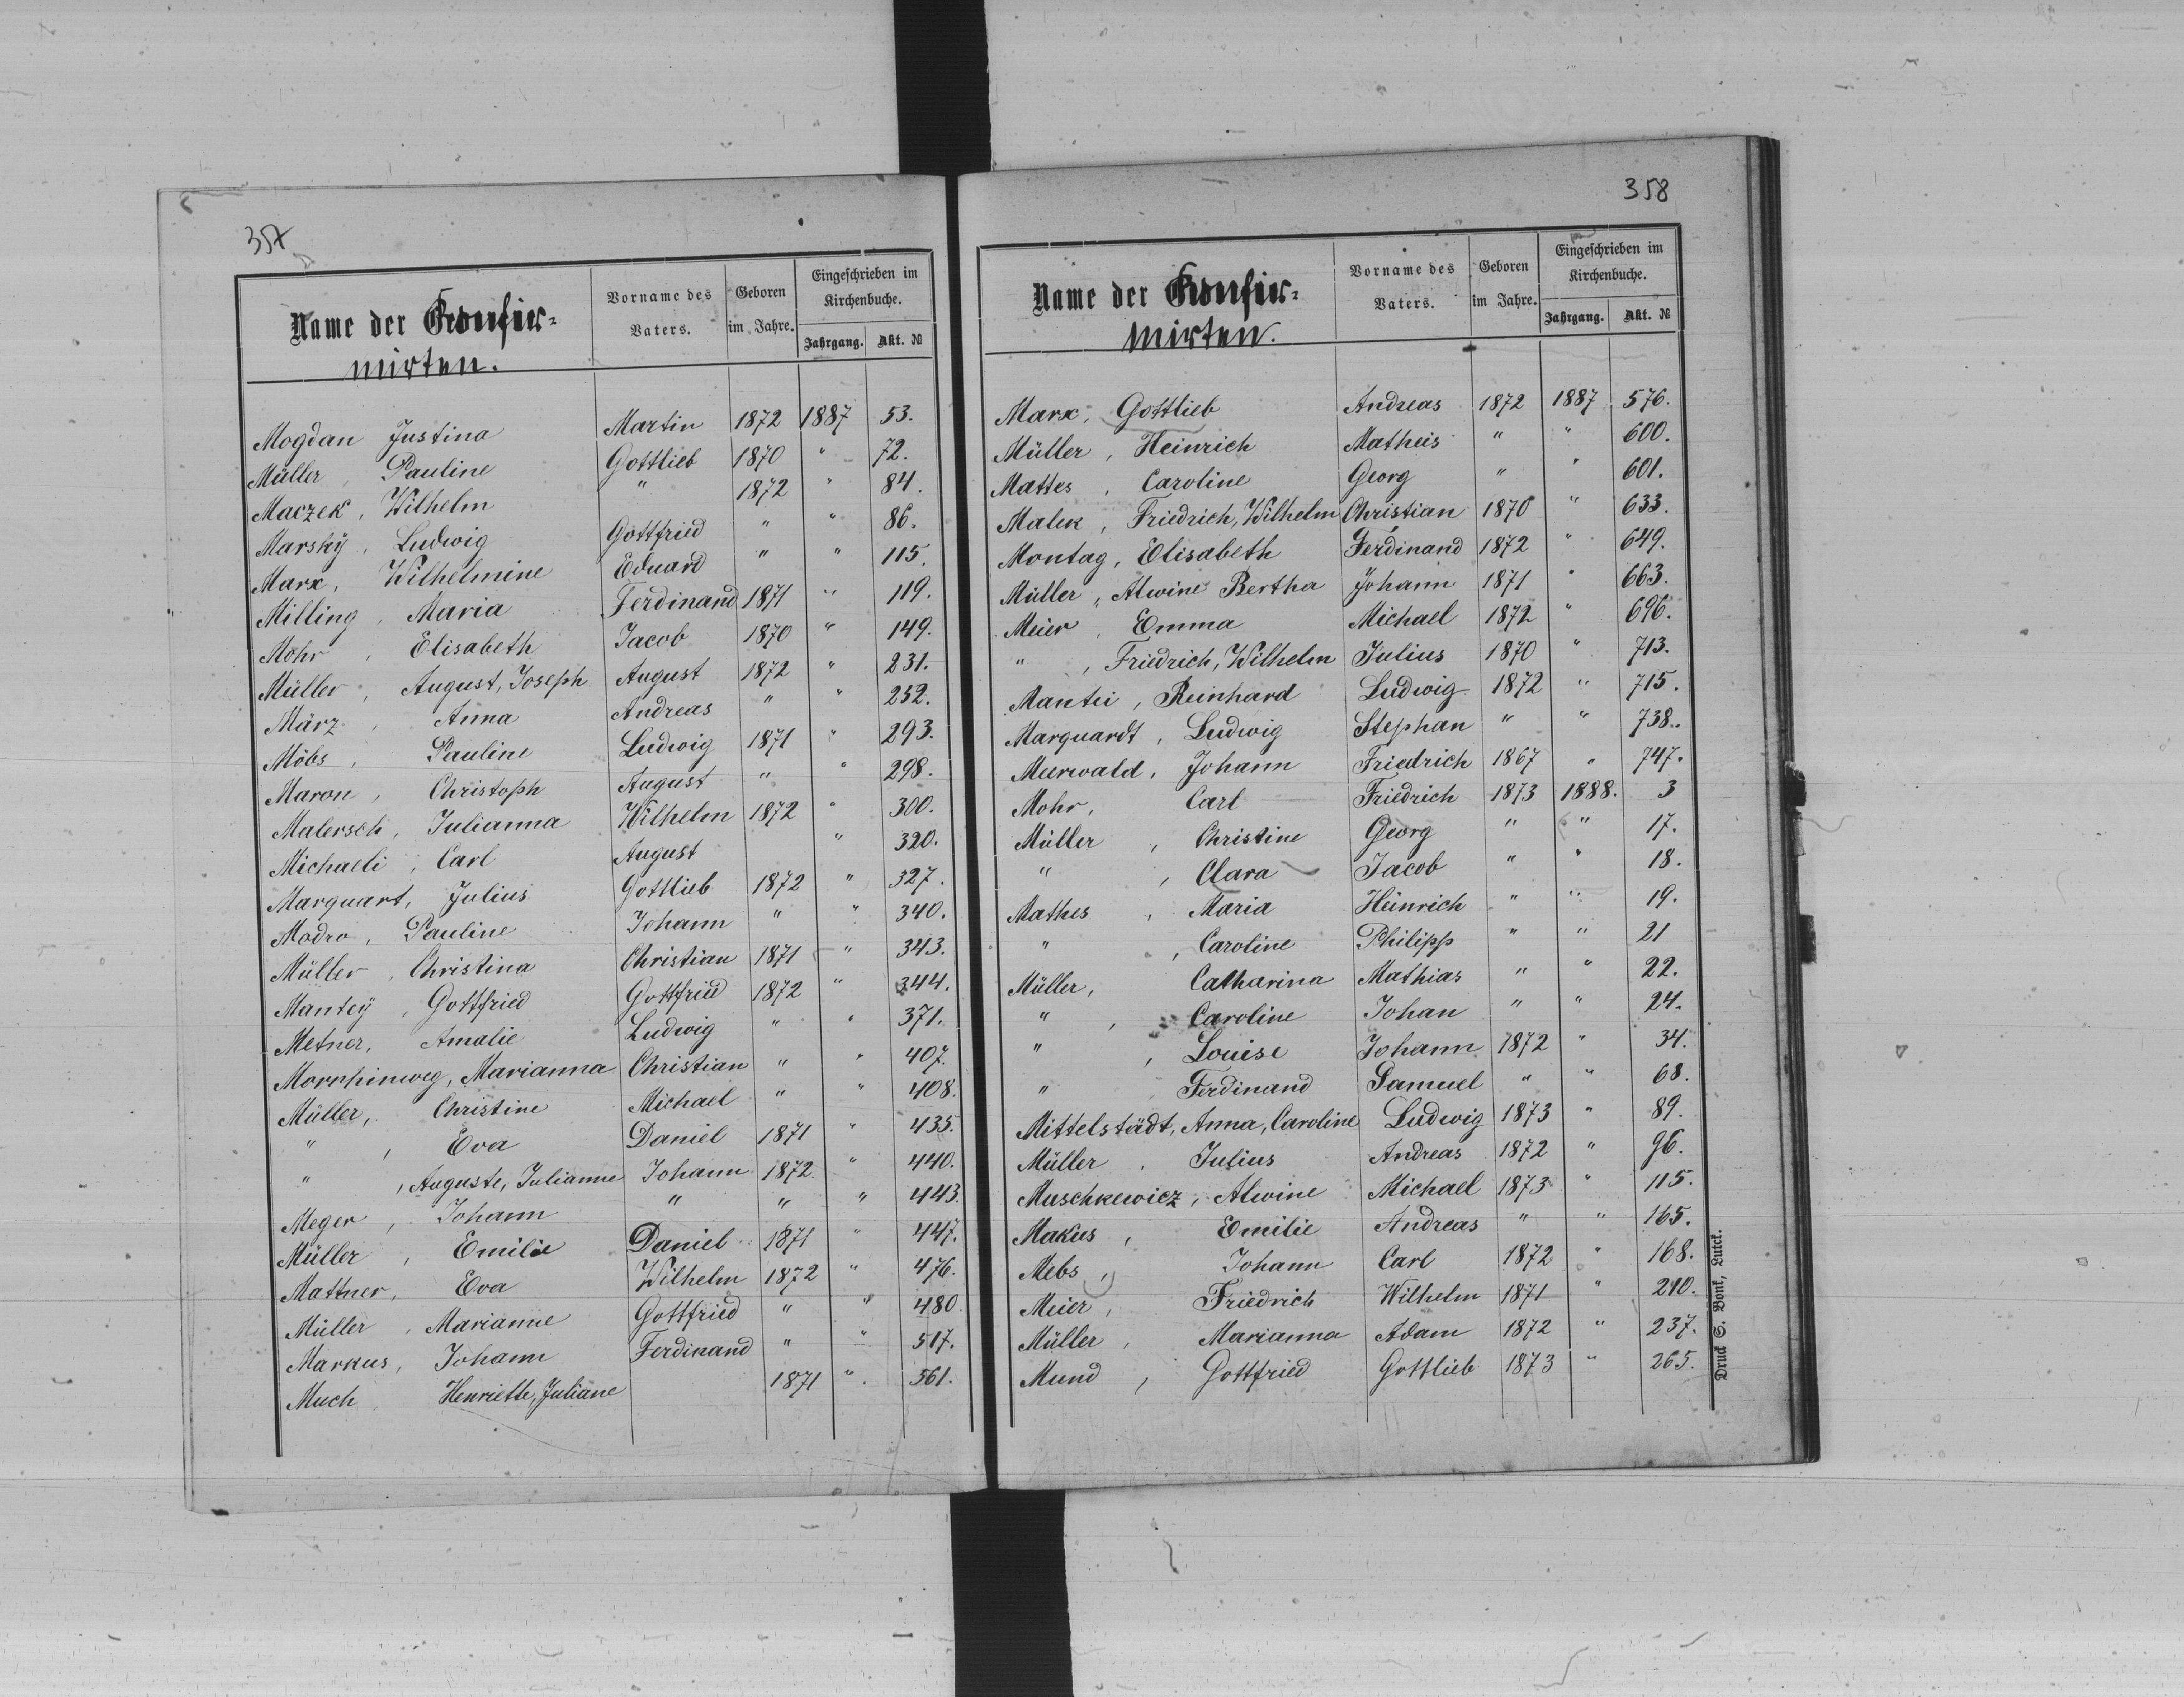 357
Name der Konfir-
mirten.
Vorname des Vaters.
Geboren im Jahre.
Eingeschrieben im Kirchenbuche.
Jahrgang. Akt. №
Mogdan Justina Martin 1872 1887 53.
Müller, Pauline Gottlieb 1870 " 72.
Maczek, Wilhelm " 1872 " 84.
Marský, Ludwig Gottfried " " 86.
Marx, Wilhelmine Eduard " " 115.
Milling, Maria Ferdinand 1871 " 119.
Mohr, Elisabeth Jacob 1870 " 149.
Müller, August, Joseph August 1872 " 231.
März, Anna Andreas " " 252.
Möbs, Pauline Ludwig 1871 " 293.
Maron, Christoph August " " 298.
Malersch, Julianna Wilhelm 1872 " 300.
Michaeli, Carl August " 320.
Marquart, Julius Gottlieb 1872 " 327.
Modro, Pauline Johann " " 340.
Müller, Christina Christian 1871 " 343.
Mantey, Gottfried Gottfried 1872 " 344.
Metner, Amalie Ludwig " " 371.
Mornhinweg, Marianna Christian " " 407.
Müller, Christine Michael " " 408.
" , Eva Daniel 1871 " 435.
" , Auguste, Julianne Johann 1872 " 440.
Meger, Johann " " " 443.
Müller, Emilie Daniel 1871 " 447.
Mattner, Eva Wilhelm 1872 " 476.
Müller, Marianne Gottfried " " 480
Markus, Johann Ferdinand " " 517.
Much, Henriette, Juliane 1871 " 561.
358
Name der Konfir-
mirten.
Vorname des Vaters.
Geboren im Jahre.
Eingeschrieben im Kirchenbuche.
Jahrgang. Akt. №
Marx, Gottlieb Andreas 1872 1887 576.
Müller, Heinrich Matheis " " 600.
Mattes, Caroline Georg " " 601.
Malek, Friedrich, Wilhelm Christian 1870 " 633.
Montag, Elisabeth Ferdinand 1872 " 649.
Müller, Alwine Bertha Johann 1871 " 663.
Meier, Emma Michael 1872 " 696.
" , Friedrich, Wilhelm Julius 1870 " 713.
Mantei, Reinhard Ludwig 1872 " 715.
Marquardt, Ludwig Stephan " " 738.
Meerwald, Johann Friedrich 1867 " 747.
Mohr, Carl Friedrich 1873 1888. 3
Müller, Christine Georg " " 17.
" , Clara Jacob " " 18.
Mathes, Maria Heinrich " " 19.
" , Caroline Philipp " " 21
Müller, Catharina Mathias " " 22.
" , Caroline Johan " " 24.
" , Louise Johann 1872 " 34.
" , Ferdinand Samuel " " 68.
Mittelstädt, Anna, Caroline Ludwig 1873 " 89.
Müller, Julius Andreas 1872 " 96.
Muschkewicz, Alwine Michael 1873 " 115.
Makus, Emilie Andreas " " 165.
Mebs, Johann Carl 1872 " 168.
Meier, Friedrich Wilhelm 1871 " 210.
Müller, Marianna Adam 1872 " 237.
Mund, Gottfried Gottlieb 1873 " 265.
Druck S. Bonk, Lutck.